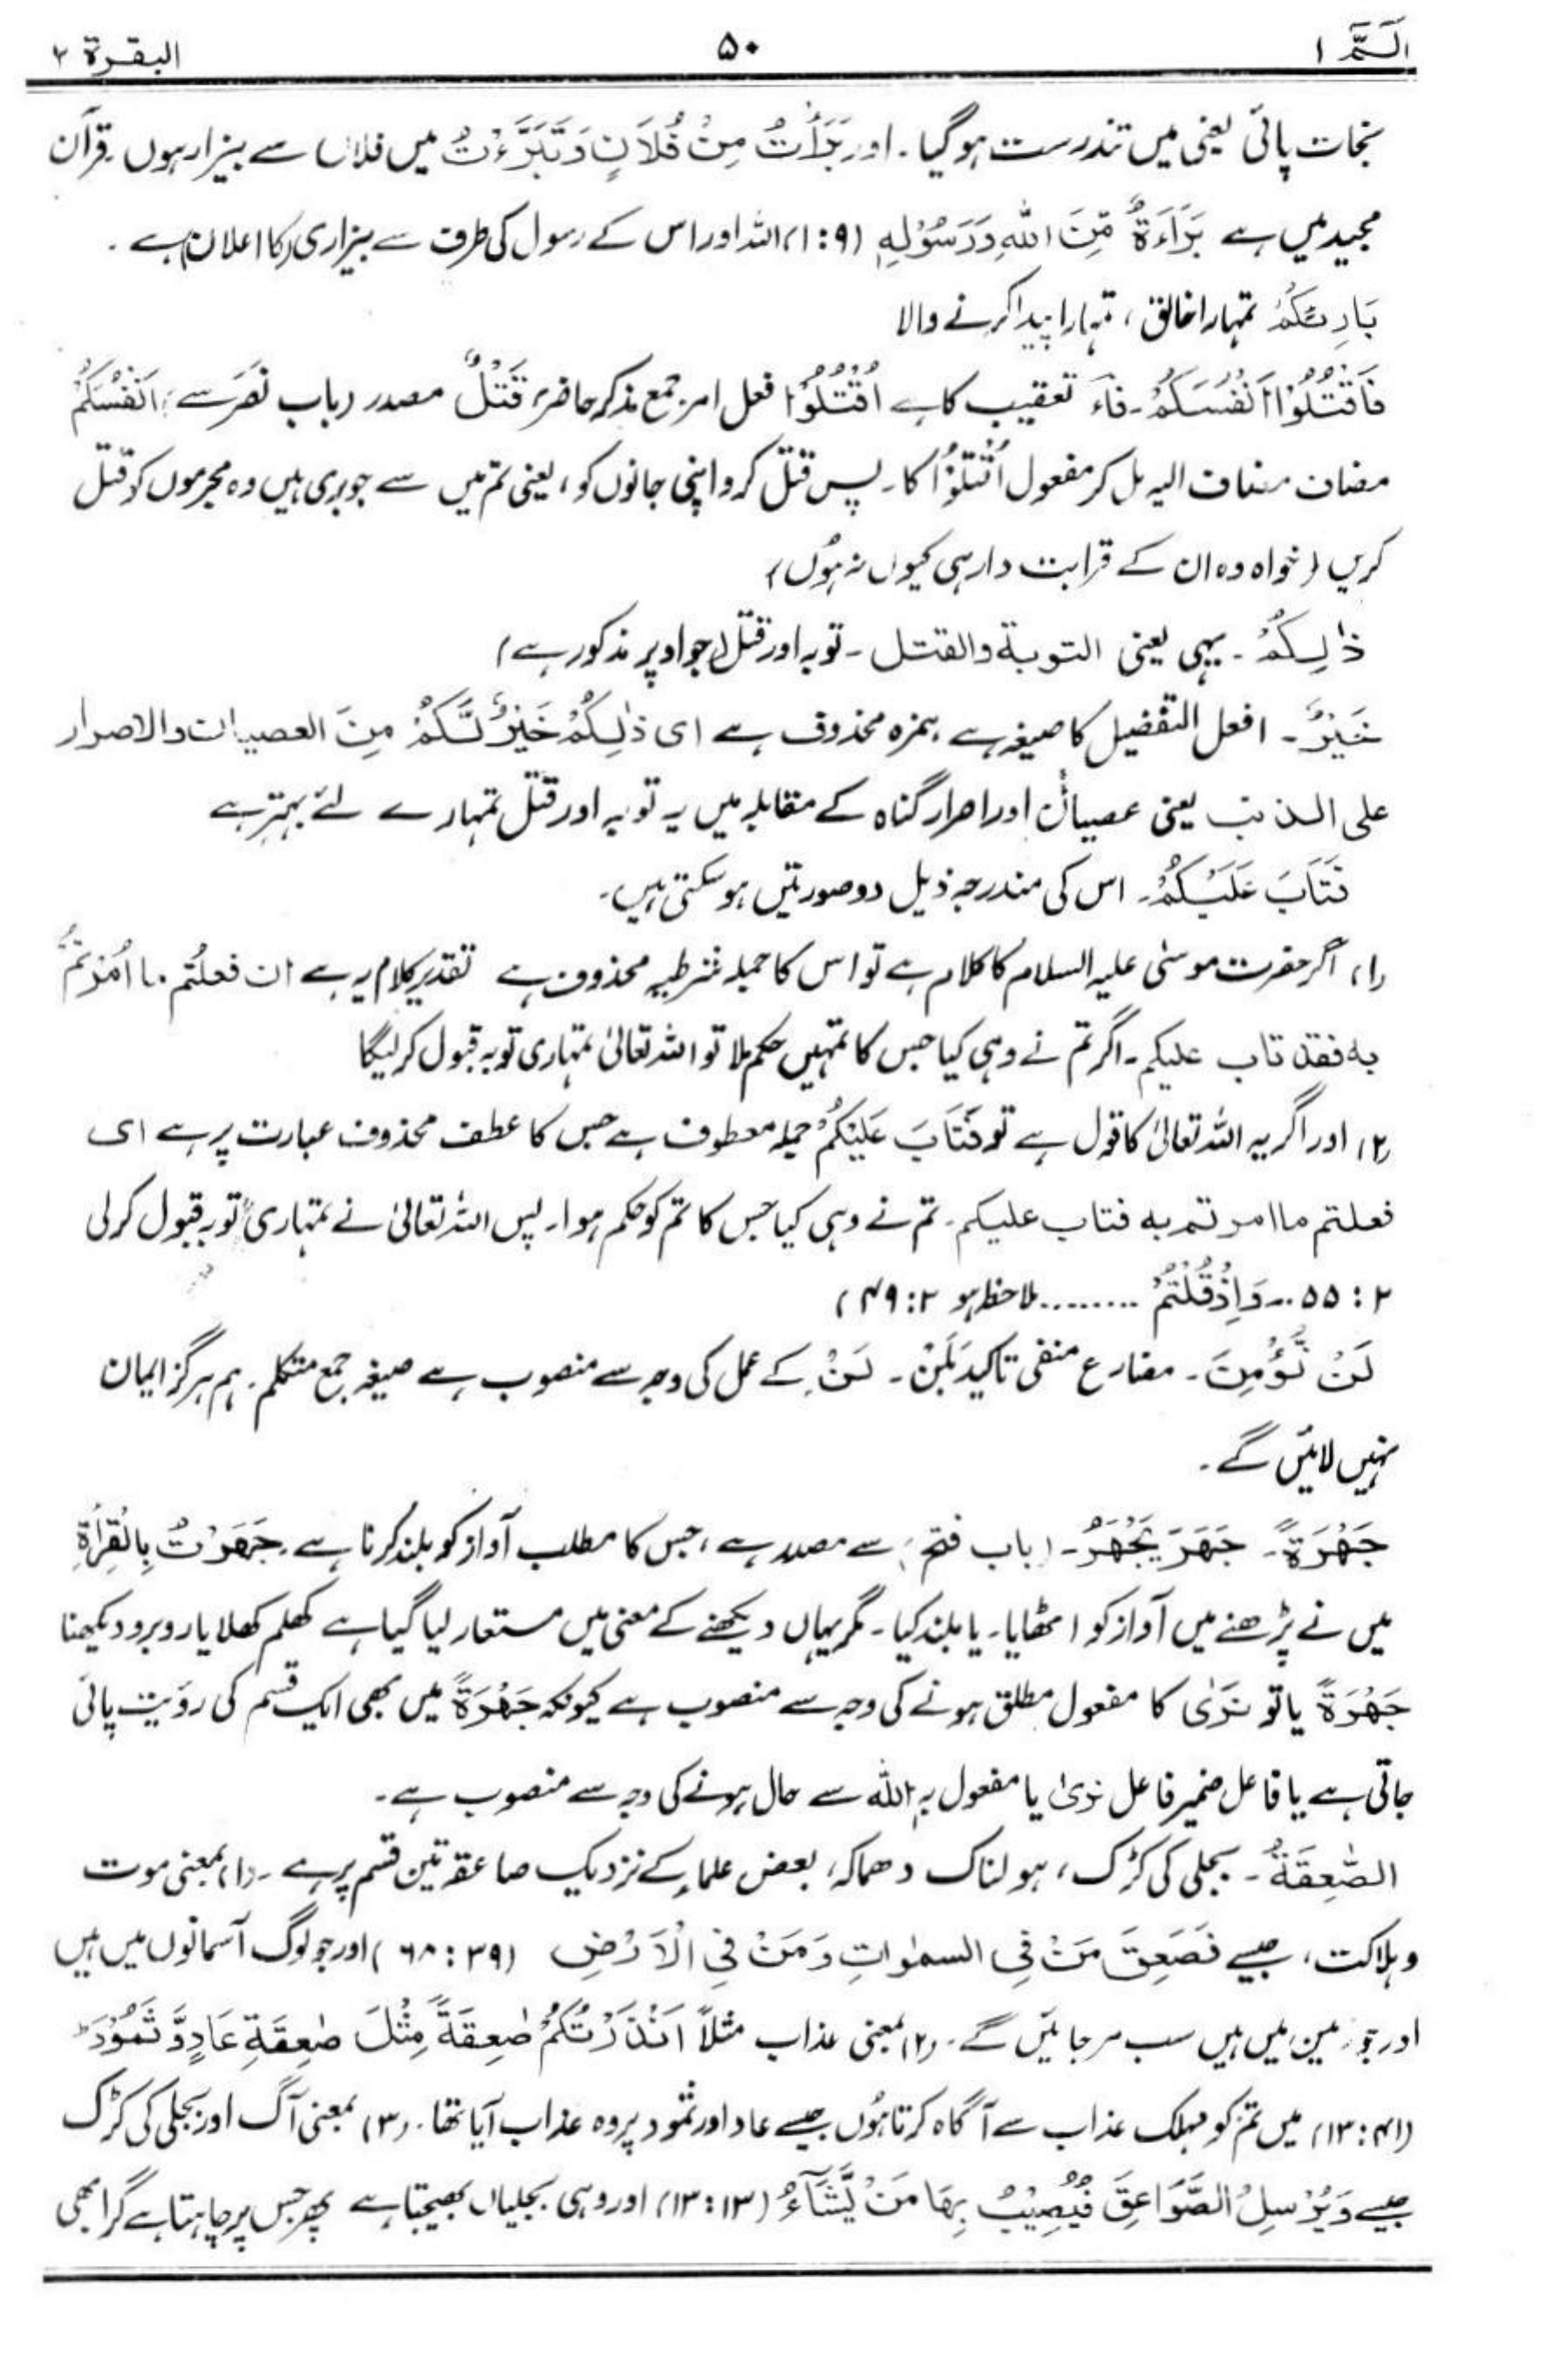 الٓمّٓ ۱ ۵۰ البقرة ۲
نجات پائی یعنی میں تندرست ہوگیا۔ اور بَرَأْتُ مِنْ فُلَانٍ وَتَبَرَّءْتُ میں فلاں سے بیزار ہوں۔ قرآن
مجید میں ہے بَرَآءَةٌ مِّنَ اللّٰهِ وَرَسُوْلِهٖ (۹:۱) اللہ اور اس کے رسول کی طرف سے بیزاری (کا اعلان) ہے۔
بَارِئِكُمْ تمہارا خالق، تمہارا پیدا کرنے والا
فَاقْتُلُوْٓا اَنْفُسَكُمْ۔ فَآءَ تعقیب کا ہے اُقْتُلُوْا فعل امر جمع مذکر حاضر، قَتْلٌ مصدر (باب نَصَرَ سے) اَنْفُسَكُمْ
مضاف مضاف الیہ مل کر مفعول اُقْتُلُوْا کا۔ پس قتل کرو اپنی جانوں کو، یعنی تم میں سے جو بری ہیں وہ مجرموں کو قتل
کریں (خواہ وہ ان کے قرابت دار ہی کیوں نہ ہوں)
ذٰلِكُمْ۔ یہی یعنی التوبة والقتل۔ توبہ اور قتل (جو اوپر مذکور ہے)
خَيْرٌ۔ افعل التفضیل کا صیغہ ہے ہمزہ محذوف ہے ای ذٰلِكُمْ خَيْرٌ لَّكُمْ مِنَ العصيان والاصرار
على الذنب یعنی عصیان اور اصرار گناہ کے مقابلہ میں یہ توبہ اور قتل تمہارے لئے بہتر ہے
فَتَابَ عَلَيْكُمْ۔ اس کی مندرجہ ذیل دو صورتیں ہوسکتی ہیں۔
(۱) اگر حضرت موسیٰ علیہ السلام کا کلام ہے تو اس کا جملہ شرطیہ محذوف ہے تقدیر کلام یہ ہے ان فعلتم ما اُمِرْتُمْ
به فقد تاب عليكم۔ اگر تم نے وہی کیا جس کا تمہیں حکم ملا تو اللہ تعالیٰ تمہاری توبہ قبول کرلیگا
(۲) اور اگر یہ اللہ تعالیٰ کا قول ہے تو فَتَابَ عَلَيْكُمْ جملہ معطوف ہے جس کا عطف محذوف عبارت پر ہے ای
فعلتم ما امرتم به فتاب عليكم۔ تم نے وہی کیا جس کا تم کو حکم ہوا۔ پس اللہ تعالیٰ نے تمہاری توبہ قبول کرلی
۲: ۵۵۔۔ وَاِذْ قُلْتُمْ ......... ملاحظہ ہو ۲: ۴۹)
لَنْ نُّؤْمِنَ۔ مضارع منفی تاکید بَلَنْ۔ لَنْ کے عمل کی وجہ سے منصوب ہے صیغہ جمع متکلم۔ ہم ہرگز ایمان
نہیں لائیں گے۔
جَهْرَةً۔ جَهَرَ يَجْهَرُ۔ (باب فتح) سے مصدر ہے، جس کا مطلب آواز کو بلند کرنا ہے۔ جَهَرْتُ بِالْقِرَأةِ
میں نے پڑھنے میں آواز کو اٹھایا۔ یا بلند کیا۔ مگر یہاں دیکھنے کے معنی میں مستعار لیا گیا ہے کھلم کھلا یا روبرو دیکھنا
جَهْرَةً یا تو نَرَى کا مفعول مطلق ہونے کی وجہ سے منصوب ہے کیونکہ جَهْرَةً میں بھی ایک قسم کی رؤیت پائی
جاتی ہے یا فاعل ضمیر فاعل نرىٰ یا مفعول بہ اللہ سے حال ہونے کی وجہ سے منصوب ہے۔
الصّٰعِقَةُ۔ بجلی کی کڑک، ہولناک دھماکہ، بعض علماء کے نزدیک صاعقہ تین قسم پر ہے۔ (۱) بمعنی موت
وہلاکت، جیسے فَصَعِقَ مَنْ فِي السمٰوٰتِ وَمَنْ فِي الْاَرْضِ (۳۹: ۶۸) اور جو لوگ آسمانوں میں ہیں
اور جو زمین میں ہیں سب مرجائیں گے۔ (۲) بمعنی عذاب مثلاً اَنْذَرْتُكُمْ صٰعِقَةً مِّثْلَ صٰعِقَةِ عَادٍ وَّثَمُوْدَ
(۴۱: ۱۳) میں تم کو مہلک عذاب سے آگاہ کرتا ہوں جیسے عاد اور ثمود پر وہ عذاب آیا تھا۔ (۳) بمعنی آگ اور بجلی کی کڑک
جیسے وَيُرْسِلُ الصَّوَاعِقَ فَيُصِيْبُ بِهَا مَنْ يَّشَآءُ (۱۳: ۱۳) اور وہی بجلیاں بھیجتا ہے پھر جس پر چاہتا ہے گرا بھی